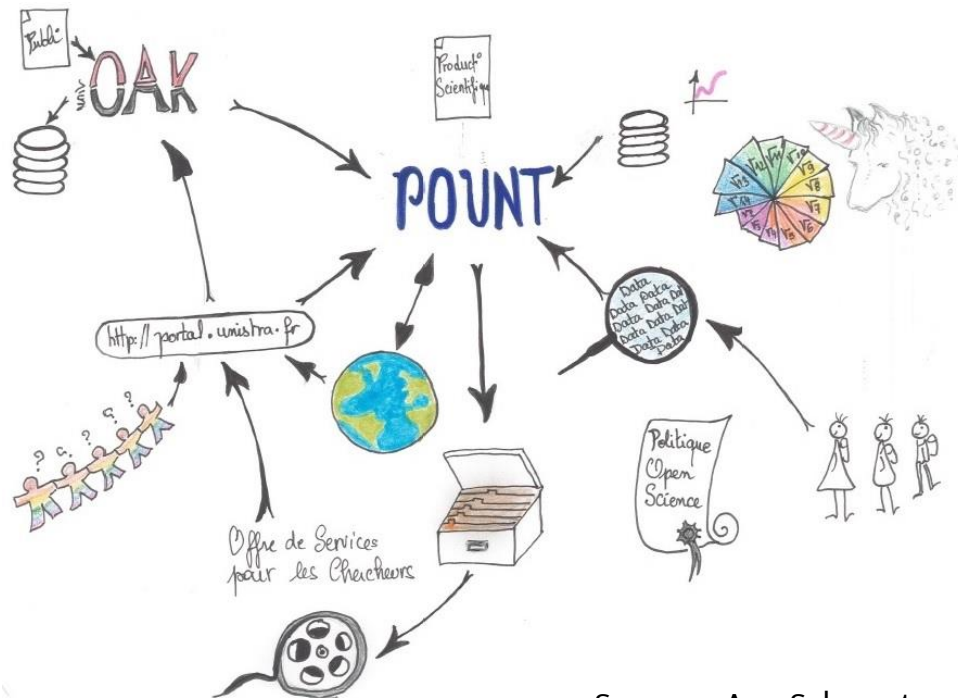 Publi
univ
OAK
Product°
Scientifique
POUNT
√11
√10
√9
√8
√7
√6
√5
√4
√3
√2
√14
√13
√12
http://portal.unistra.fr
Data
Data Data
Data Data Dat
Data Data Dat
Data Data
Data
? ? ? ? ?
Politique
Open
Science
Offre de Services
pour les Chercheurs